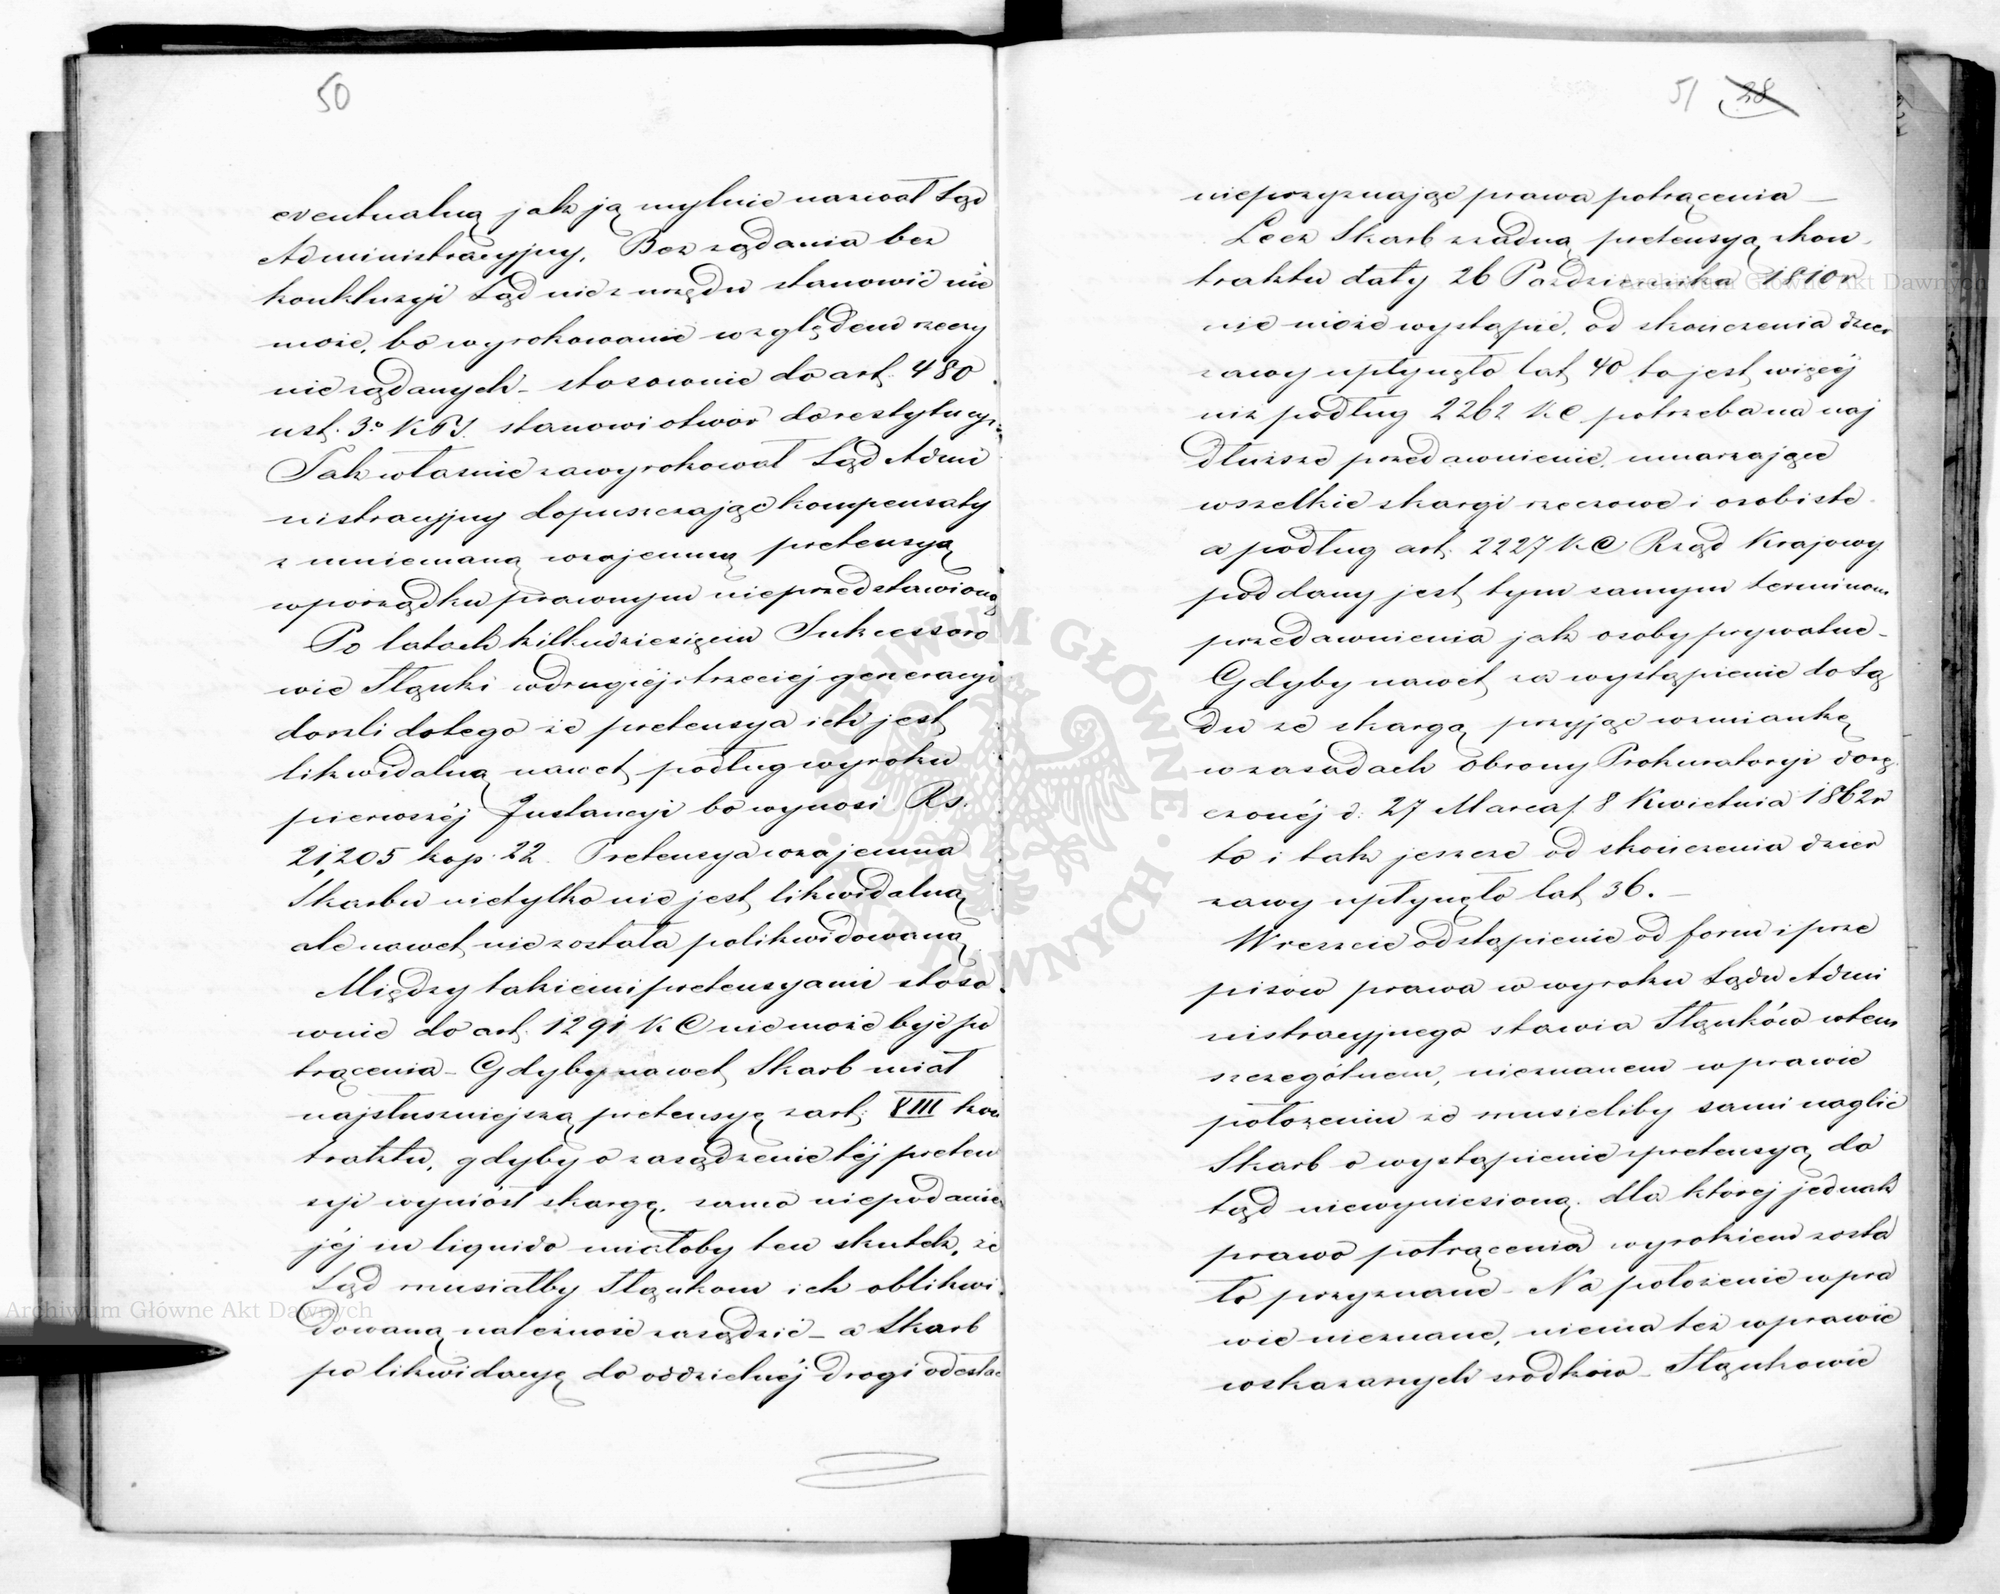 50
eventualną jak ją mylnie nazwał Sąd
Administracyjny. Bez żądania bez
konkluzyi Sąd nic z urzędu stanowić nie
może, bo wyrokowanie względem rzeczy
nie żądanych – stosownie do art. 480
ust. 3º KPS. stanowi otwór do restytucyi
Tak własnie zawyrokował Sąd Admi
nistracyjny dopuszczając kompensaty
z mniemaną wzajemną pretensyą
w porządku prawnym nieprzedstawioną
Po latach kilkudziesięciu Sukcessoro
wie Flząuki w drugiéj i trzeciéj generacyi
doszli dotego że pretensya ich jest
likwidalną nawet podług wyroku
pierwszéj Instancyi bo wynosi Rs.
21,205 kop. 22. Pretensya wzajemna
Skarbu nietylko nie jest likwidalną
ale nawet nie została polikwidowaną
Między takiemi pretensyami stoso
wnie do art. 1291 KC nie może być po
trącenia – Gdyby nawet Skarb miał
najsłuszniejszą pretensyę z art. XIII kon
traktu, gdyby o zasądzenie téj preten
syi wyniósł skargę, samo niepodanie
jéj in liquido miałoby ten skutek, że
Sąd musiałby ich oblikwi
dowaną należność zasądzić – a Skarb
po likwidacyę do oddzielnéj drogi odesłać
51 28
nieprzyznając prawa potrącenia –
Lecz Skarb z żadną pretensyą z kon
traktu daty 26 Października 1810 r
nie może wystąpić, od skończenia dzier
żawy upłynęło lat 40 to jest więcéj
niż podług 2262 KC potrzeba na naj
dłuższe przedawnienie, umarzające
wszelkie skargi rzeczowe i osobiste
a podług art. 2227 KC Rząd Krajowy
poddany jest tym samym terminom
przedawnienia jak osoby prywatne –
Gdyby nawet za wystąpienie do Są
du ze skargą przyjąć wzmiankę
w zasadach obrony Prokuratoryi dorę
czonéj d. 27 Marca/ 8 Kwietnia 1862 r
to i tak jeszcze od skończenia dzier
żawy upłynęło lat 36. –
Wreszcie odstąpienie od form i prze
pisów prawa w wyroku Sądu Admi
nistracyjnego stawia w tem
szczególnem, nieznanem w prawie
położeniu że musieliby sami naglić
Skarb o wystąpienie z pretensyą do
tąd niewyniesioną, dla któréj jednak
prawo potrącenia wyrokiem zosta
ło przyznane – Na położenie w pra
wie nieznane, niema też w prawie
wskazanych srodków –